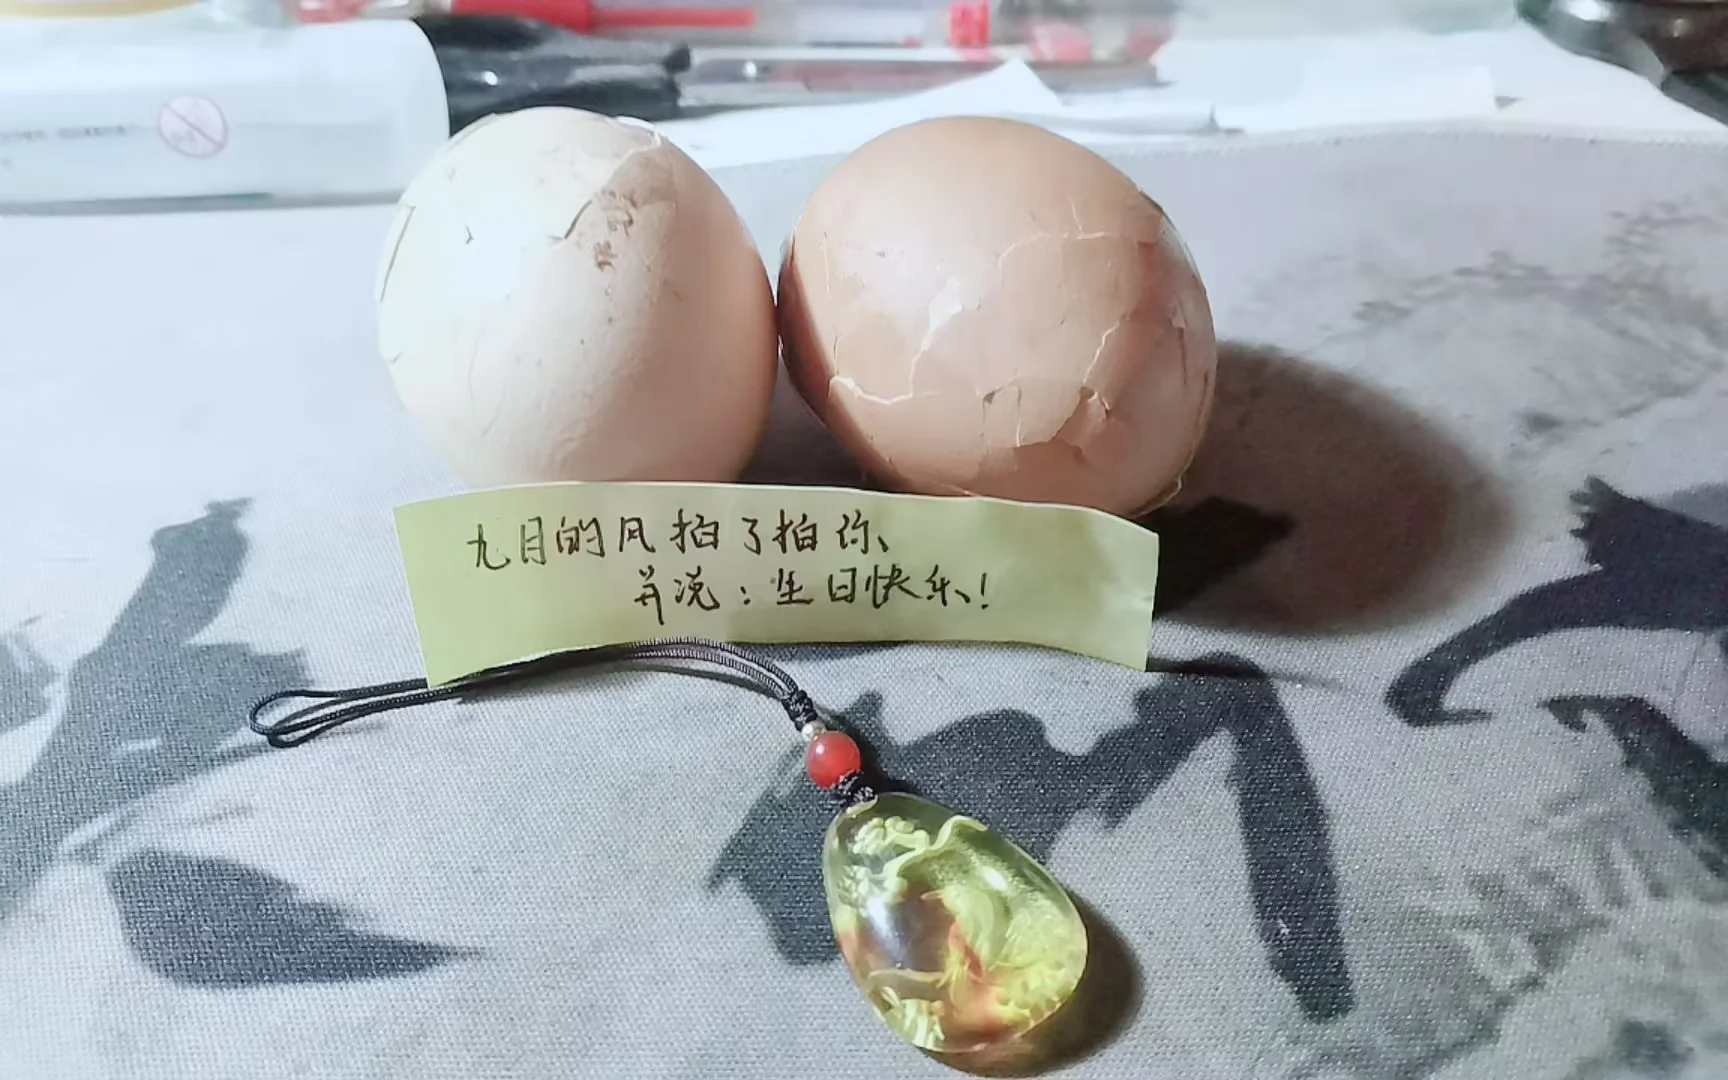 九月的风拍了拍你、
并说：生日快乐!